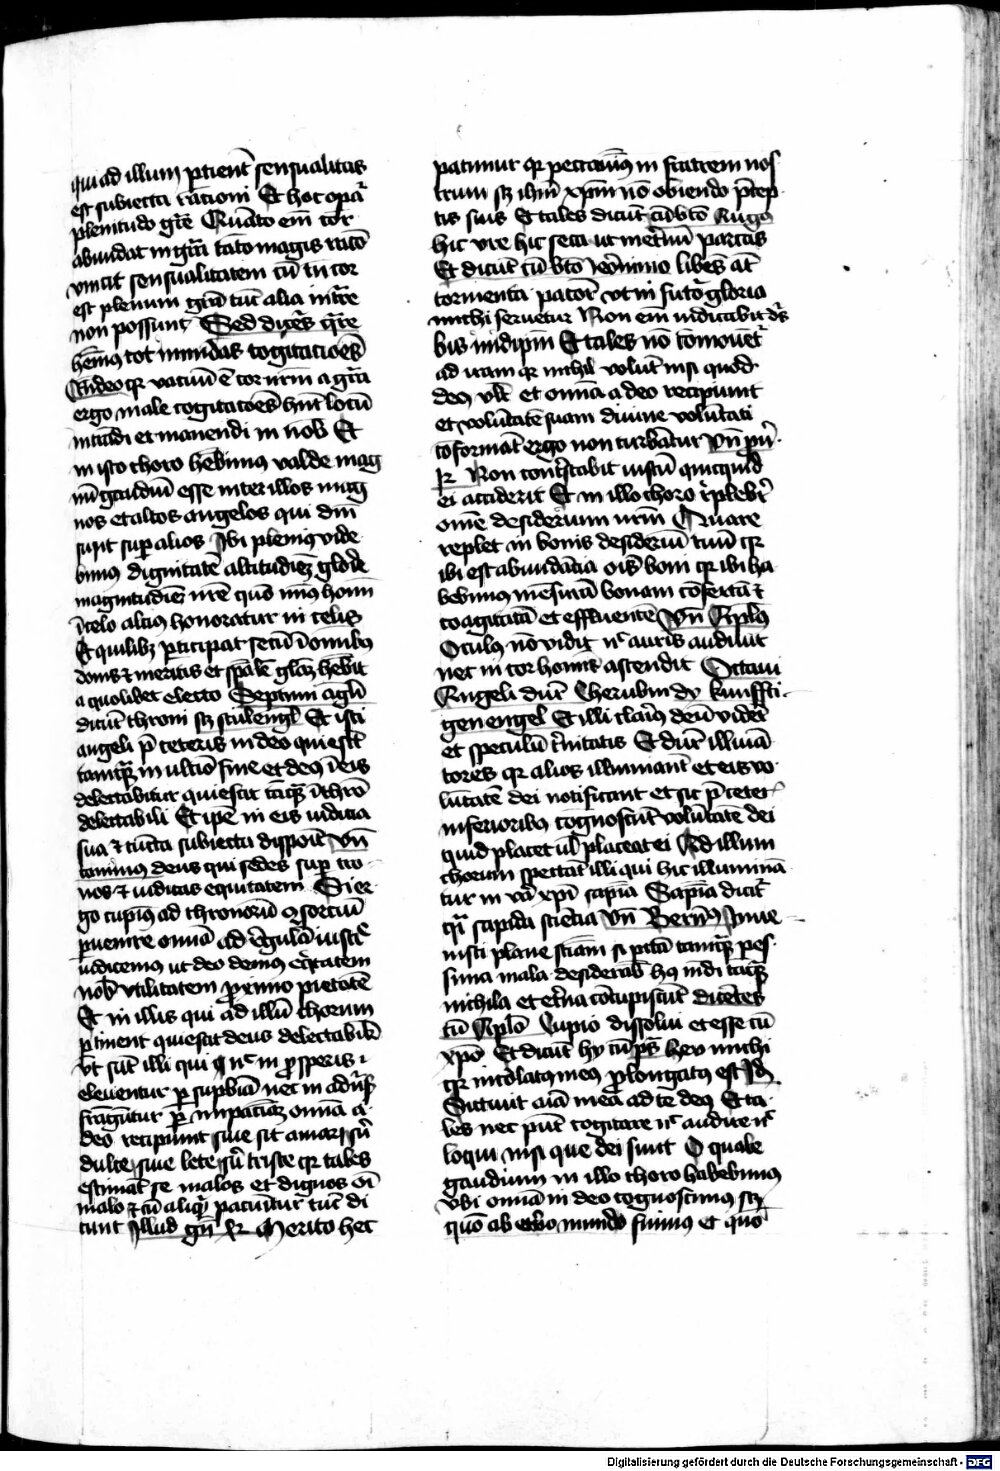 qui ad illum ꝑtient sensualitas
est subiecta rationi Et hoc opat᷑
plenitudo gr̄e Quāto em̄ cor
abundat in grā tāto magis racō
vincit sensualitatem cū em̄ cor
est plenum grā tūc alia intrare
non possunt Sed dices qr̄e
hēmus tot inmūdas cogitacōes
Rn̄deo qꝛ vacuū ē cor nr̄m a grā
ergo male cogitatōes hn̄t locū
intrādi et manendi in nob̄ Et
in isto choro hebimus valde mag
nū gaudiū esse inter illos mag
nos et altos angelos qui dn̄i
sunt suꝑ alios Ibi plenius vide
bimus dignitatē altitudinē glorie
magnitudinē nr̄e quō vnus homo
ī celo altius honoratur in celis
Et quilibꝫ ꝑticipat secū ī omnibꝰ
donis ⁊ meritis et spālē gloriā hēbit
a quolibet electo Septimi angli
dicūt᷑ throni sꝫ stulengl Et isti
angeli p̄ ceteris in deo quiescūt
tamqꝫ in vltīo fine et deus ī eis
delectabitur quiescit tāqꝫ ī thrō
delectabili Et ipē in eis iudicia
sua ⁊ cūcta subiecta dispoīt Vn̄
canimus deus qui sedes suꝑ tro
nos ⁊ iudicas equitatem Si er
go cupimꝰ ad thronorū ꝯsortiū
ꝑuenire omīa ad regulā iusticie
iudicemus ut deo demus eq̄tatem
nob̄ vtilitatem ꝓximo pietatē
Et in illis qui ad illū chorum
ꝑtinent quiescit deus delectabilr̄
Et sūt illi qui nec in ꝓsperis
eleuentur ꝑ suꝑbiā nec in aduersis
frāgūtur ꝑ inpaciaꝫ omīa a
deo recipiunt siue sit amarū
dulce siue lete siue triste qꝛ tales
estimāt se malos et dignos oī
malo ⁊ cū aliqͥd patiūtur tūc di
cunt Illud gen̄ Merito hec
patimur qꝛ peccauimꝰ in fratrem nos
trum sꝫ ihm̄ xp̄m nō obiendo p̄cep
tis suis Et tales dicūt cū bt̄o Augꝰ
hic vre hic seca ut in et̄nū parcas
Et dicūt cū bt̄o Jeronimo libens at̄
tormenta patior vt in futō gloria
michi seruetur Non em̄ iudicabit ds̄
bis in idipm̄ Et tales nō cōmouēt᷑
ad iram qꝛ nichil volūt nisi quod
deus vlt̄ et omīa a deo recipiunt
et volūtatē suam diuine volūtati
cōformāt ergo non turbātur Vn̄ pu᷑
Non contristabit iustū quicquid
ei acciderit Et in illo choro replebit᷑
omē desiderium nr̄m Quare
replet in bonis desideriū tuū qꝛ
ibi est abundātia oīs boni qꝛ ibi ha
bebimus mēsurā bonam cōfertā ⁊
coagitatā et effluentē Vn̄ Apl̄us
Oculus nō vidit nͨ auris audiuit
nec in cor homīs ascendit Octaui
Angeli dūt᷑ Cherubin dy kunsti
gen engel Et illi clariꝰ deū vidēt
et speculū t᷑nitatis Et dūt᷑ illuīa
tores qꝛ alios illuminant et eis vo
lūtatē dei notificant et sic p̄ ceteris
inferioribꝰ cognoscūt volūtatē dei
quid placet vl̄ placeat ei Ad illum
chorum spectāt illi qui hic illuminā
tur in vā xp̄i sapīa Sapīa dicit᷑
qͣsi sapida sciēcia Vn̄ Bern̄us Inue
nisti plane sciam si pctā tamqꝫ pes
sima mala desiderab̄ hꝰ mūdi tāqꝫ
nichila et et̄na cōcupiscūt dicētes
cū Aplo Cupio dissolui et esse cū
xp̄o Et dicūt hy cū ps̄ Heu michi
qꝛ incolatus meus ꝓlongatus est Id
Sitiuit aīa mea ad te deus Et ta
les nec pn̄t cogitare nͨ audire nͨ
loqui nisi que dei sunt O quale
gaudium in illo choro habebimus
Vbi omīa in deo cognoscimus sꝫ
quō ab euo mundo fuimus et quō
Digitalisierung gefördert durch die Deutsche Forschungsgemeinschaft - DFG